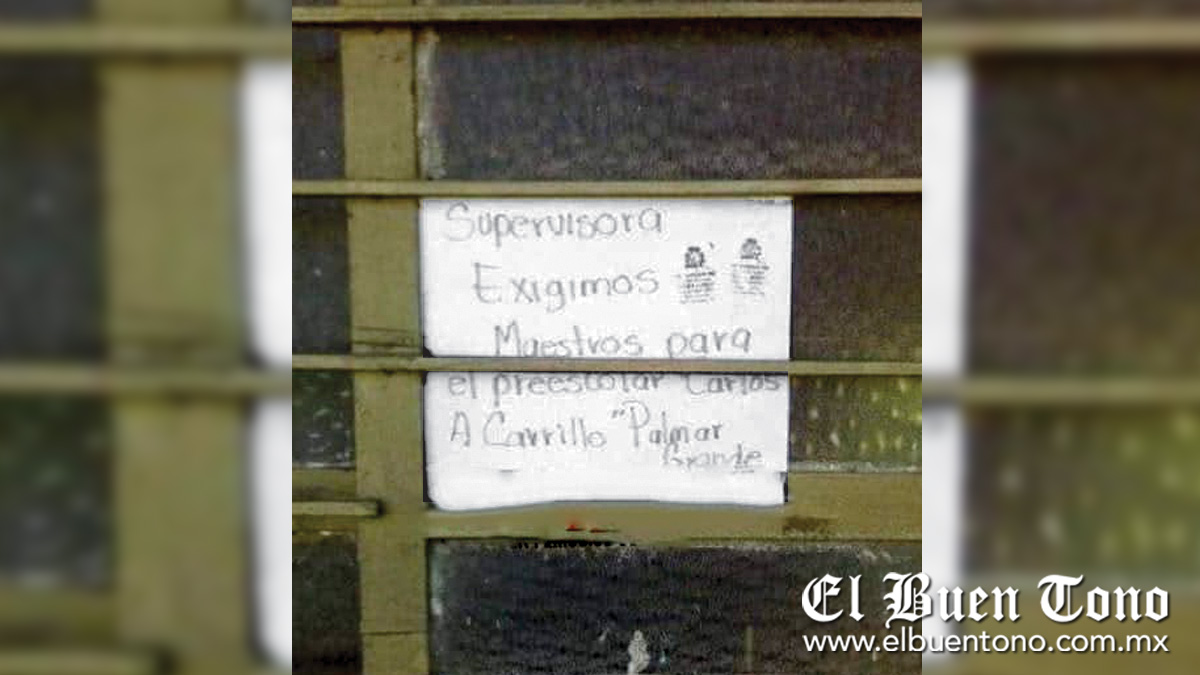 Supervisora
Exigimos
Maestros para
el preescolar Carlos
A Carrillo "Palmar
Grande
El Buen Tono
www.elbuentono.com.mx